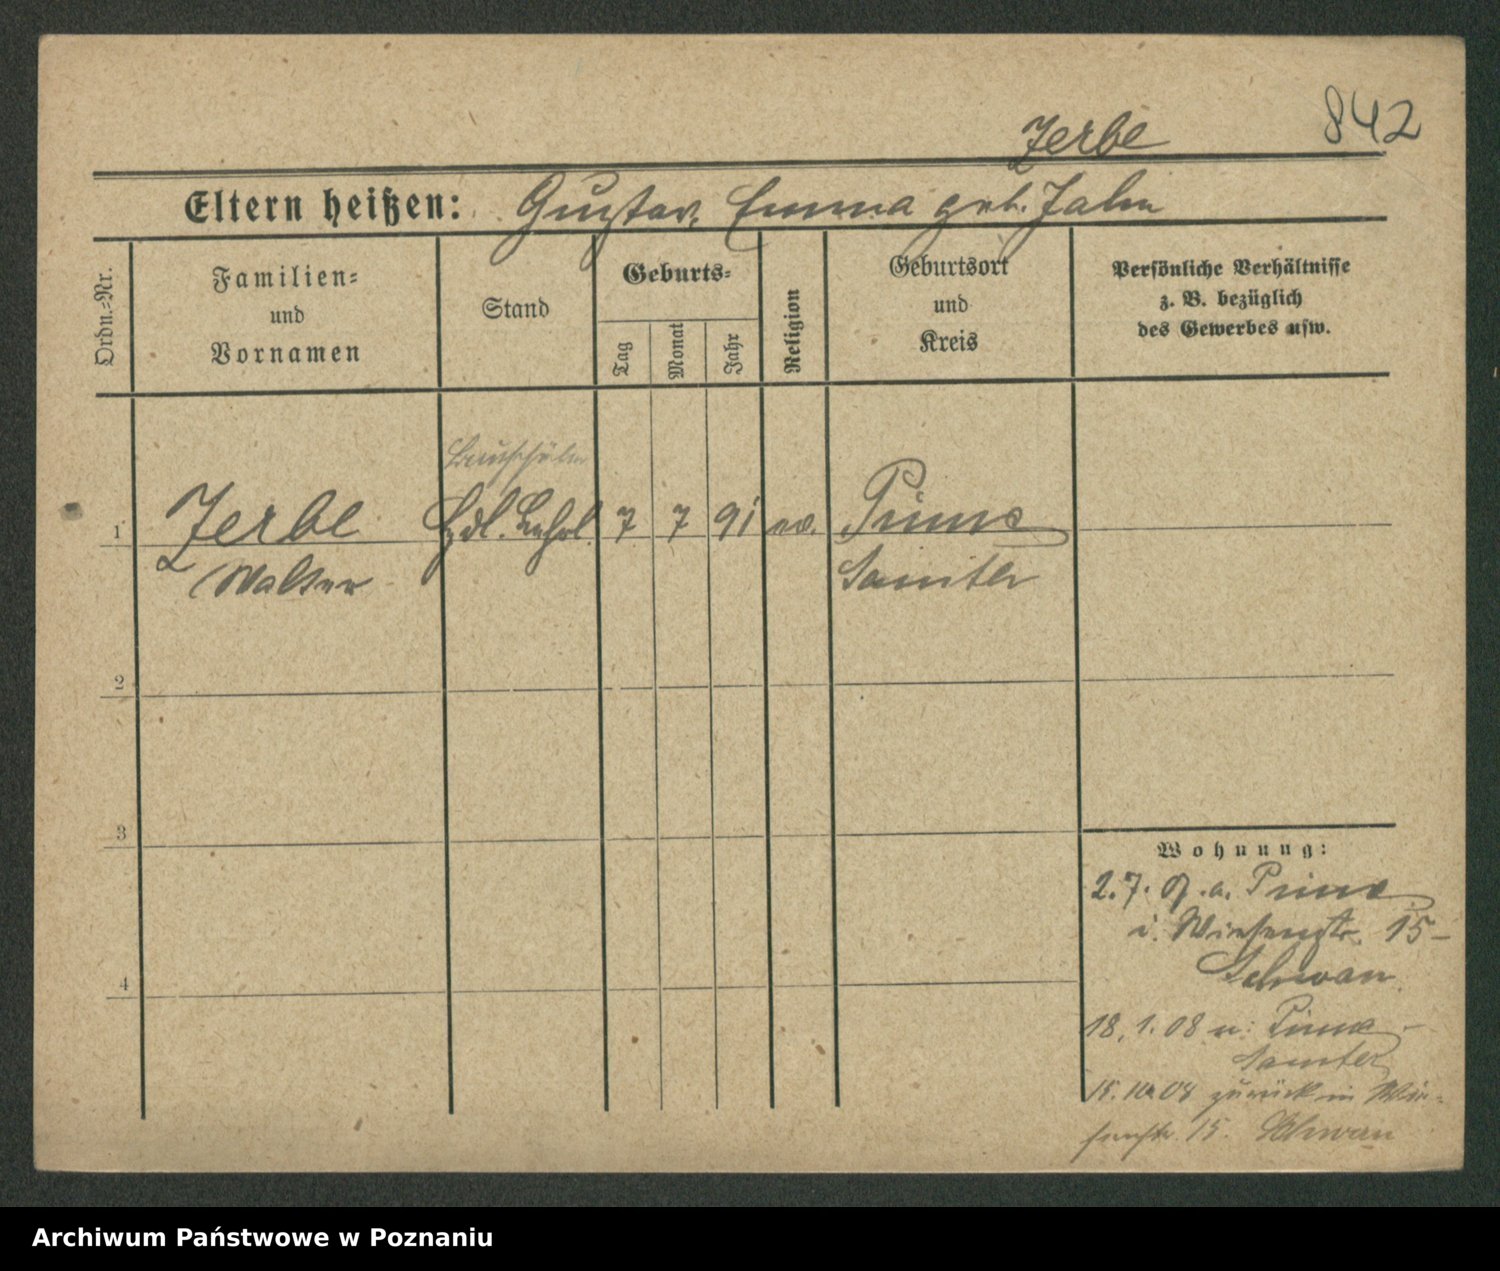 842
Zerbe
Eltern heißen: Gustav, Emma geb. Jahn
Ordn.-Nr.
Familien-
und
Vornamen
Stand
Geburts-
Tag
Monat
Jahr
Religion
Geburtsort
und
Kreis
Persönliche Verhältnisse
z. B. bezüglich
des Gewerbes usw.
Bauschüler
1 Zerbe Hdl. Lehrl. 7 7 91 ev. Pinne
Walter Samter
2
3
4
Wohnung:
2.7. 07 .a. Pinne
i. Wiesenstr. 15 –
Schwan
18.1.08 n: Pinne –
Samter
15. 08 zurück in Wie-
senstr. 15. Schwan
Archiwum Państwowe w Poznaniu